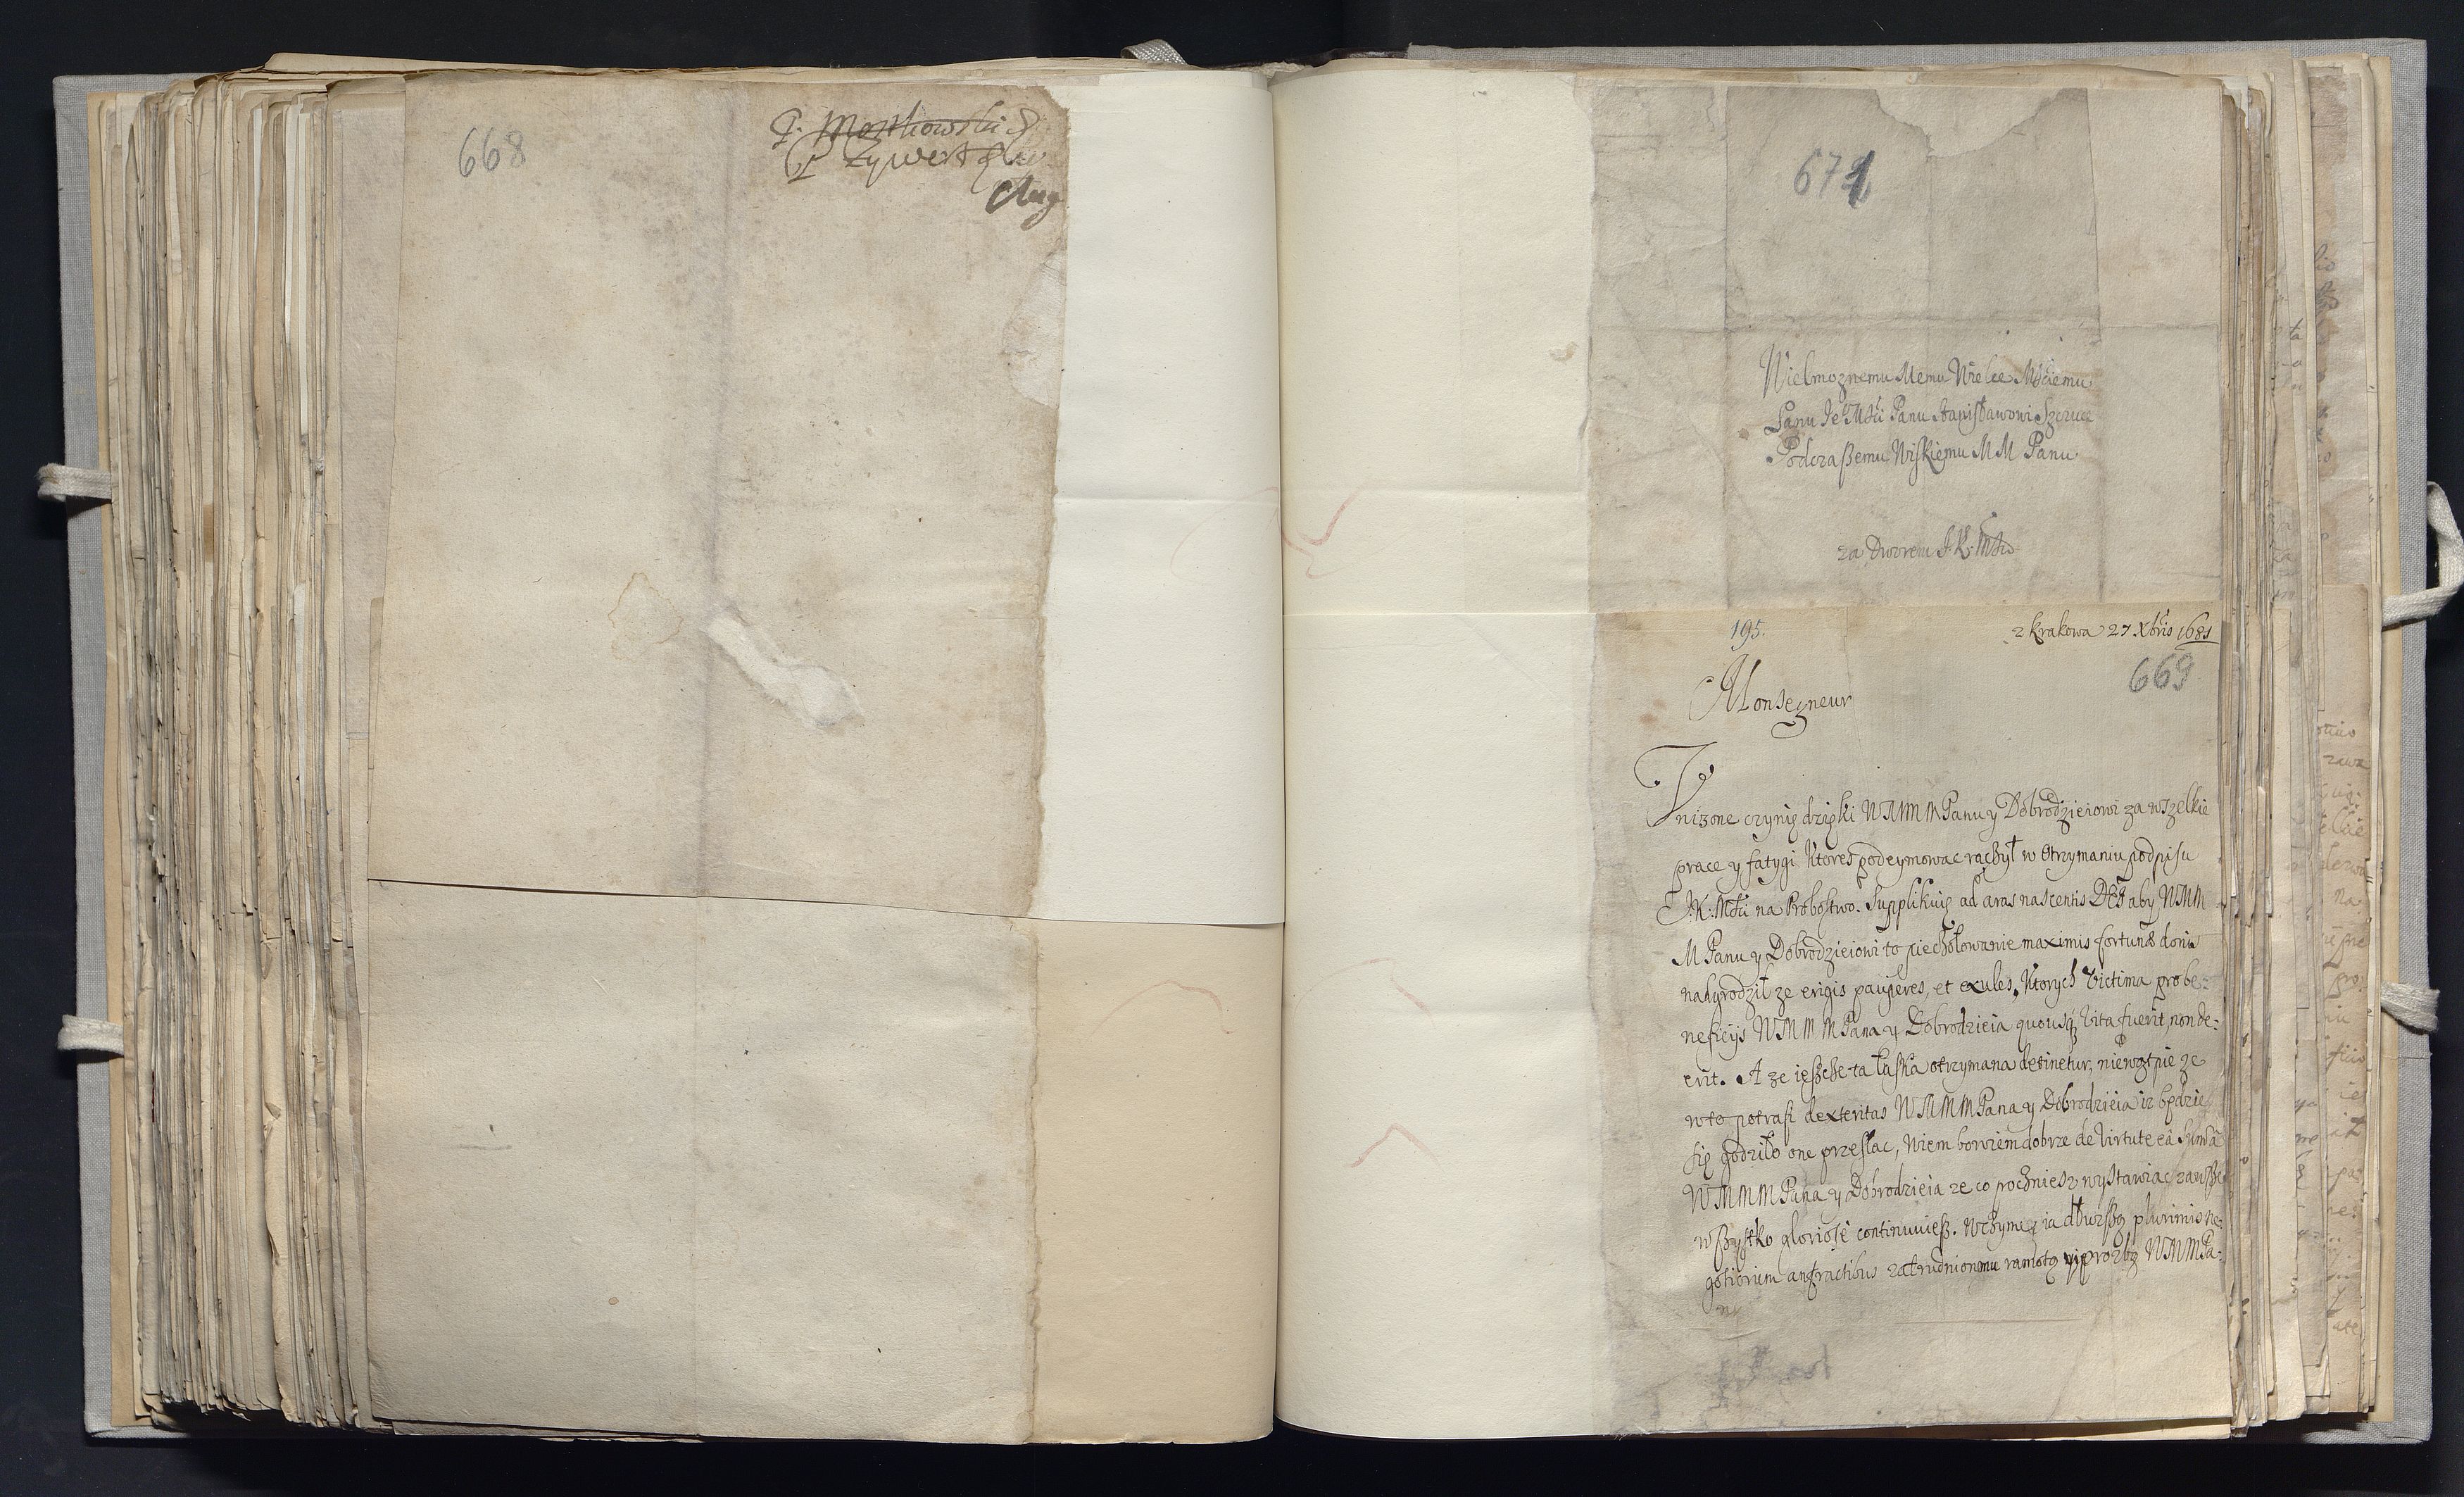 668
P. Mostkowski
P Zywert
Aug
671
Wielmoznemu Memu Wielce Mściemu
Panu Je Mści Panu Stanisławowi Szczuce
Podczaßemu Wiskiemu M M Panu
za Dworem J K Mści
195.
z Krakowa 27 Xbris 1681
669
Monsegneur
Vnizone czynię dzięki W M M M Panu y Dobrodzieiowi za wszelkie
prace y fatygi ktores podeymowac raczył w otrzymaniu podpisu
J. K. Mści na Probostwo. Supplikuię ad aras nascentis DEI aby W M M
M Panu y Dobrodzieiowi to piecżołowanie maximis fortunæ donis
nadgrodził ze erigis pauperes, et exules, ktorych Victima pro be:
neficijs W M M M Pana y Dobrodzieia quousq vita fuerit, non de:
erit. A ze ießcże ta łaska otrzymana detinetur, niewątpie ze
w to potrafi dexteritas W M M M Pana y Dobrodzieia iz będzie
się godziło one przesłac, Wiem bowiem dobrze de virtute ea
W M M M Pana y Dobrodzieia ze co pocżniesz wystawiac zawsze
wßystko gloriose continuuieß. Wcżym y ia dłuzßą plurimis ne:
gotiorum anfractibus zatrudnionemu ramotą y prozbą W M M Pa: